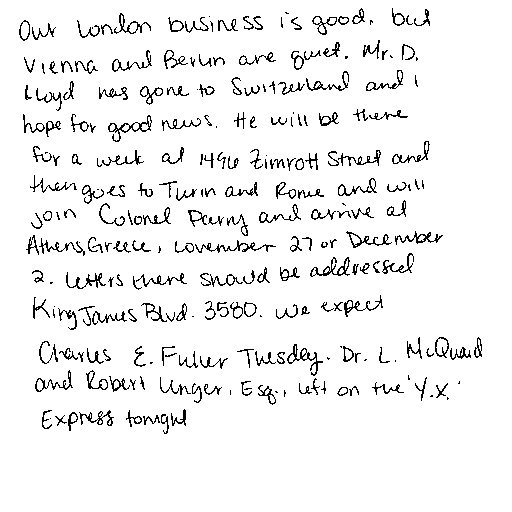 Our London business is good, but
Vienna and Berlin are quiet. Mr. D.
Lloyd has gone to Switzerland and I
hope for good news. He will be there
for a week at 1496 Zimrott Street and
then goes to Turin and Rome and will
join Colonel Parry and arrive at
Athens, Greece, November 27 or December
2. Letters there should be addressed
King James Blvd. 3580. We expect
Charles E. Fuller Tuesday. Dr. L. McQuaid
and Robert Unger, Esq., left on the 'Y.X.'
Express tonight